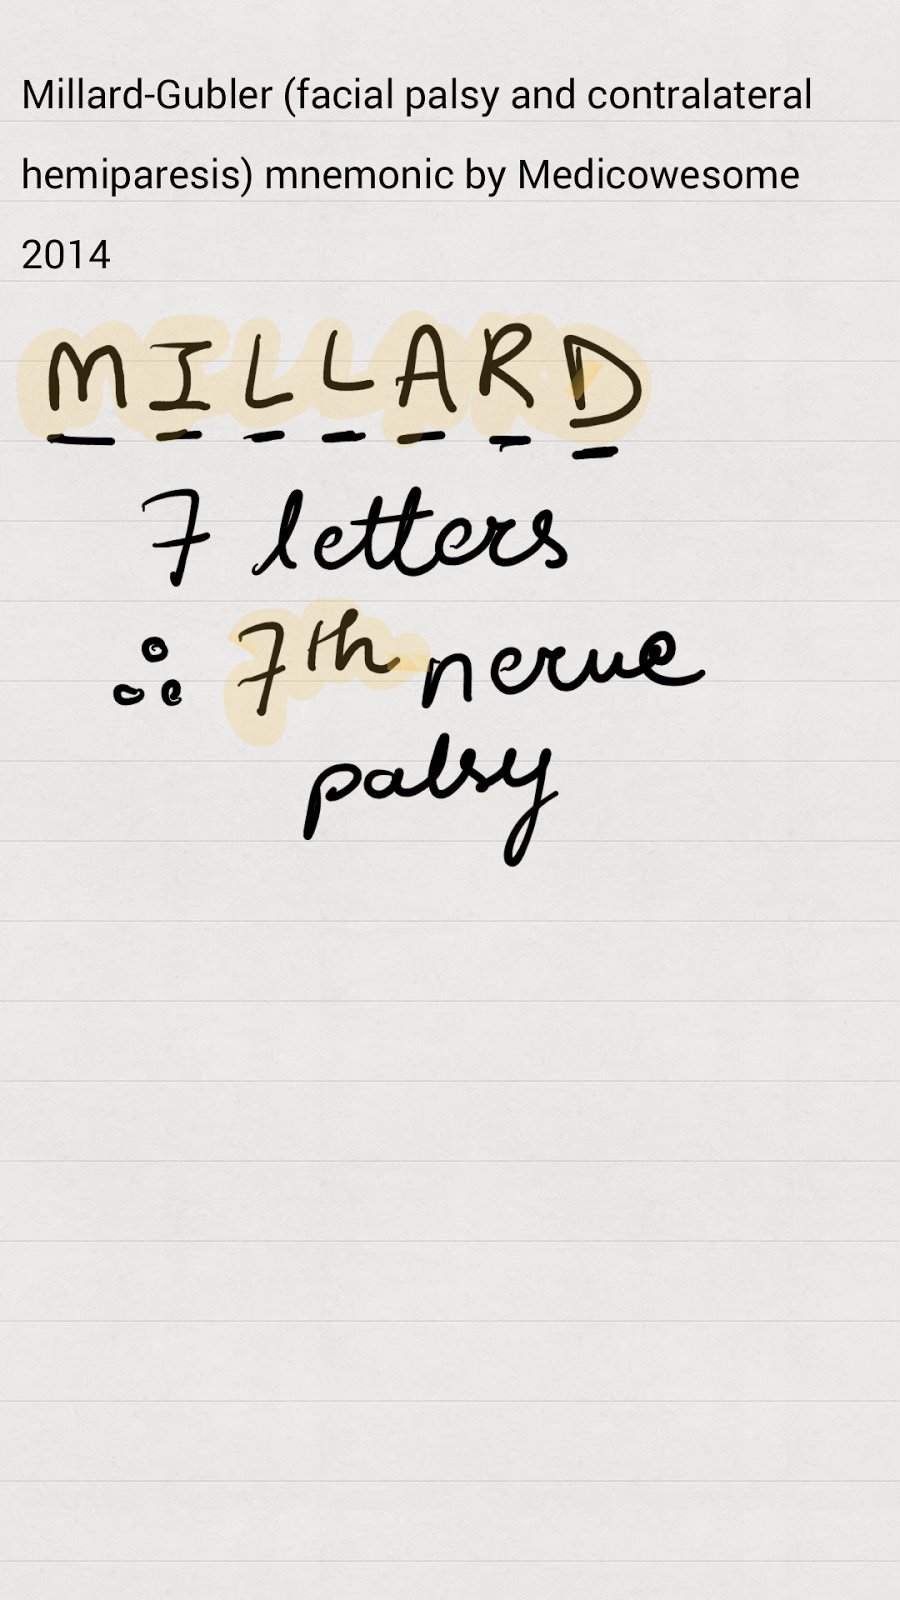 Millard-Gubler (facial palsy and contralateral
hemiparesis) mnemonic by Medicowesome
2014
MILLARD
7 letters
∴ 7th nerve
palsy